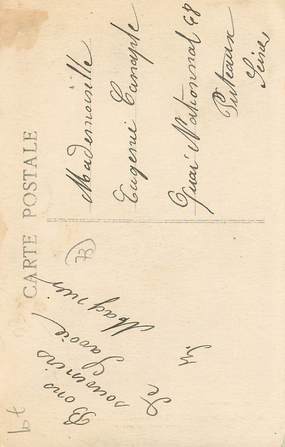 CARTE POSTALE
Mademoiselle
Eugenie Canaple
Quai National 48
Puteaux
Seine
73
Bons
souvenirs
de
Savoie
Magnin
bt